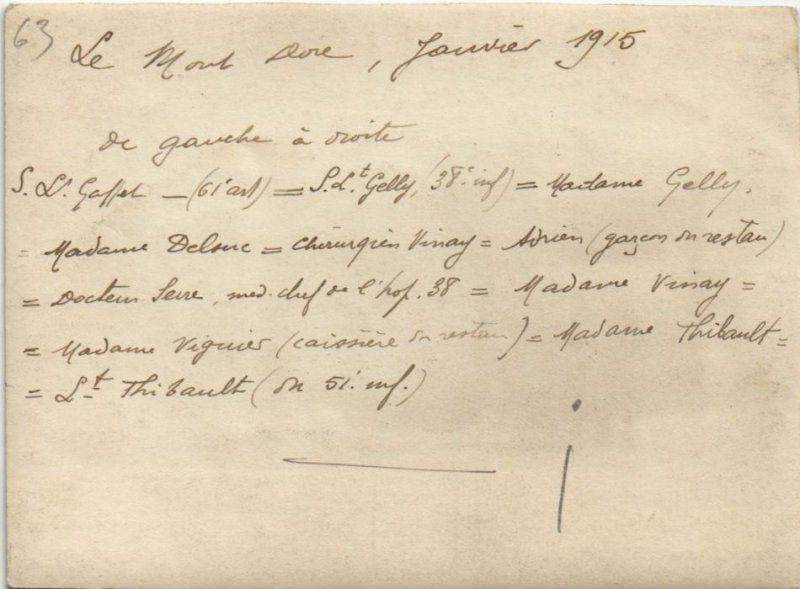 63
Le Mont Dore, Janvier 1915
de gauche à droite
S. Lt. Gaffet — (61e art) = S. Lt. Gelly, (38e inf) = Madame Gelly.
= Madame Delsuc = chirurgien Vinay = Adrien (garçon du restau)
= Docteur Serre, med. chef de l'hop. 38 = Madame Vinay =
= Madame Viguier (caissière du restau) = Madame Thibault =
= Lt Thibault (du 51e inf.)